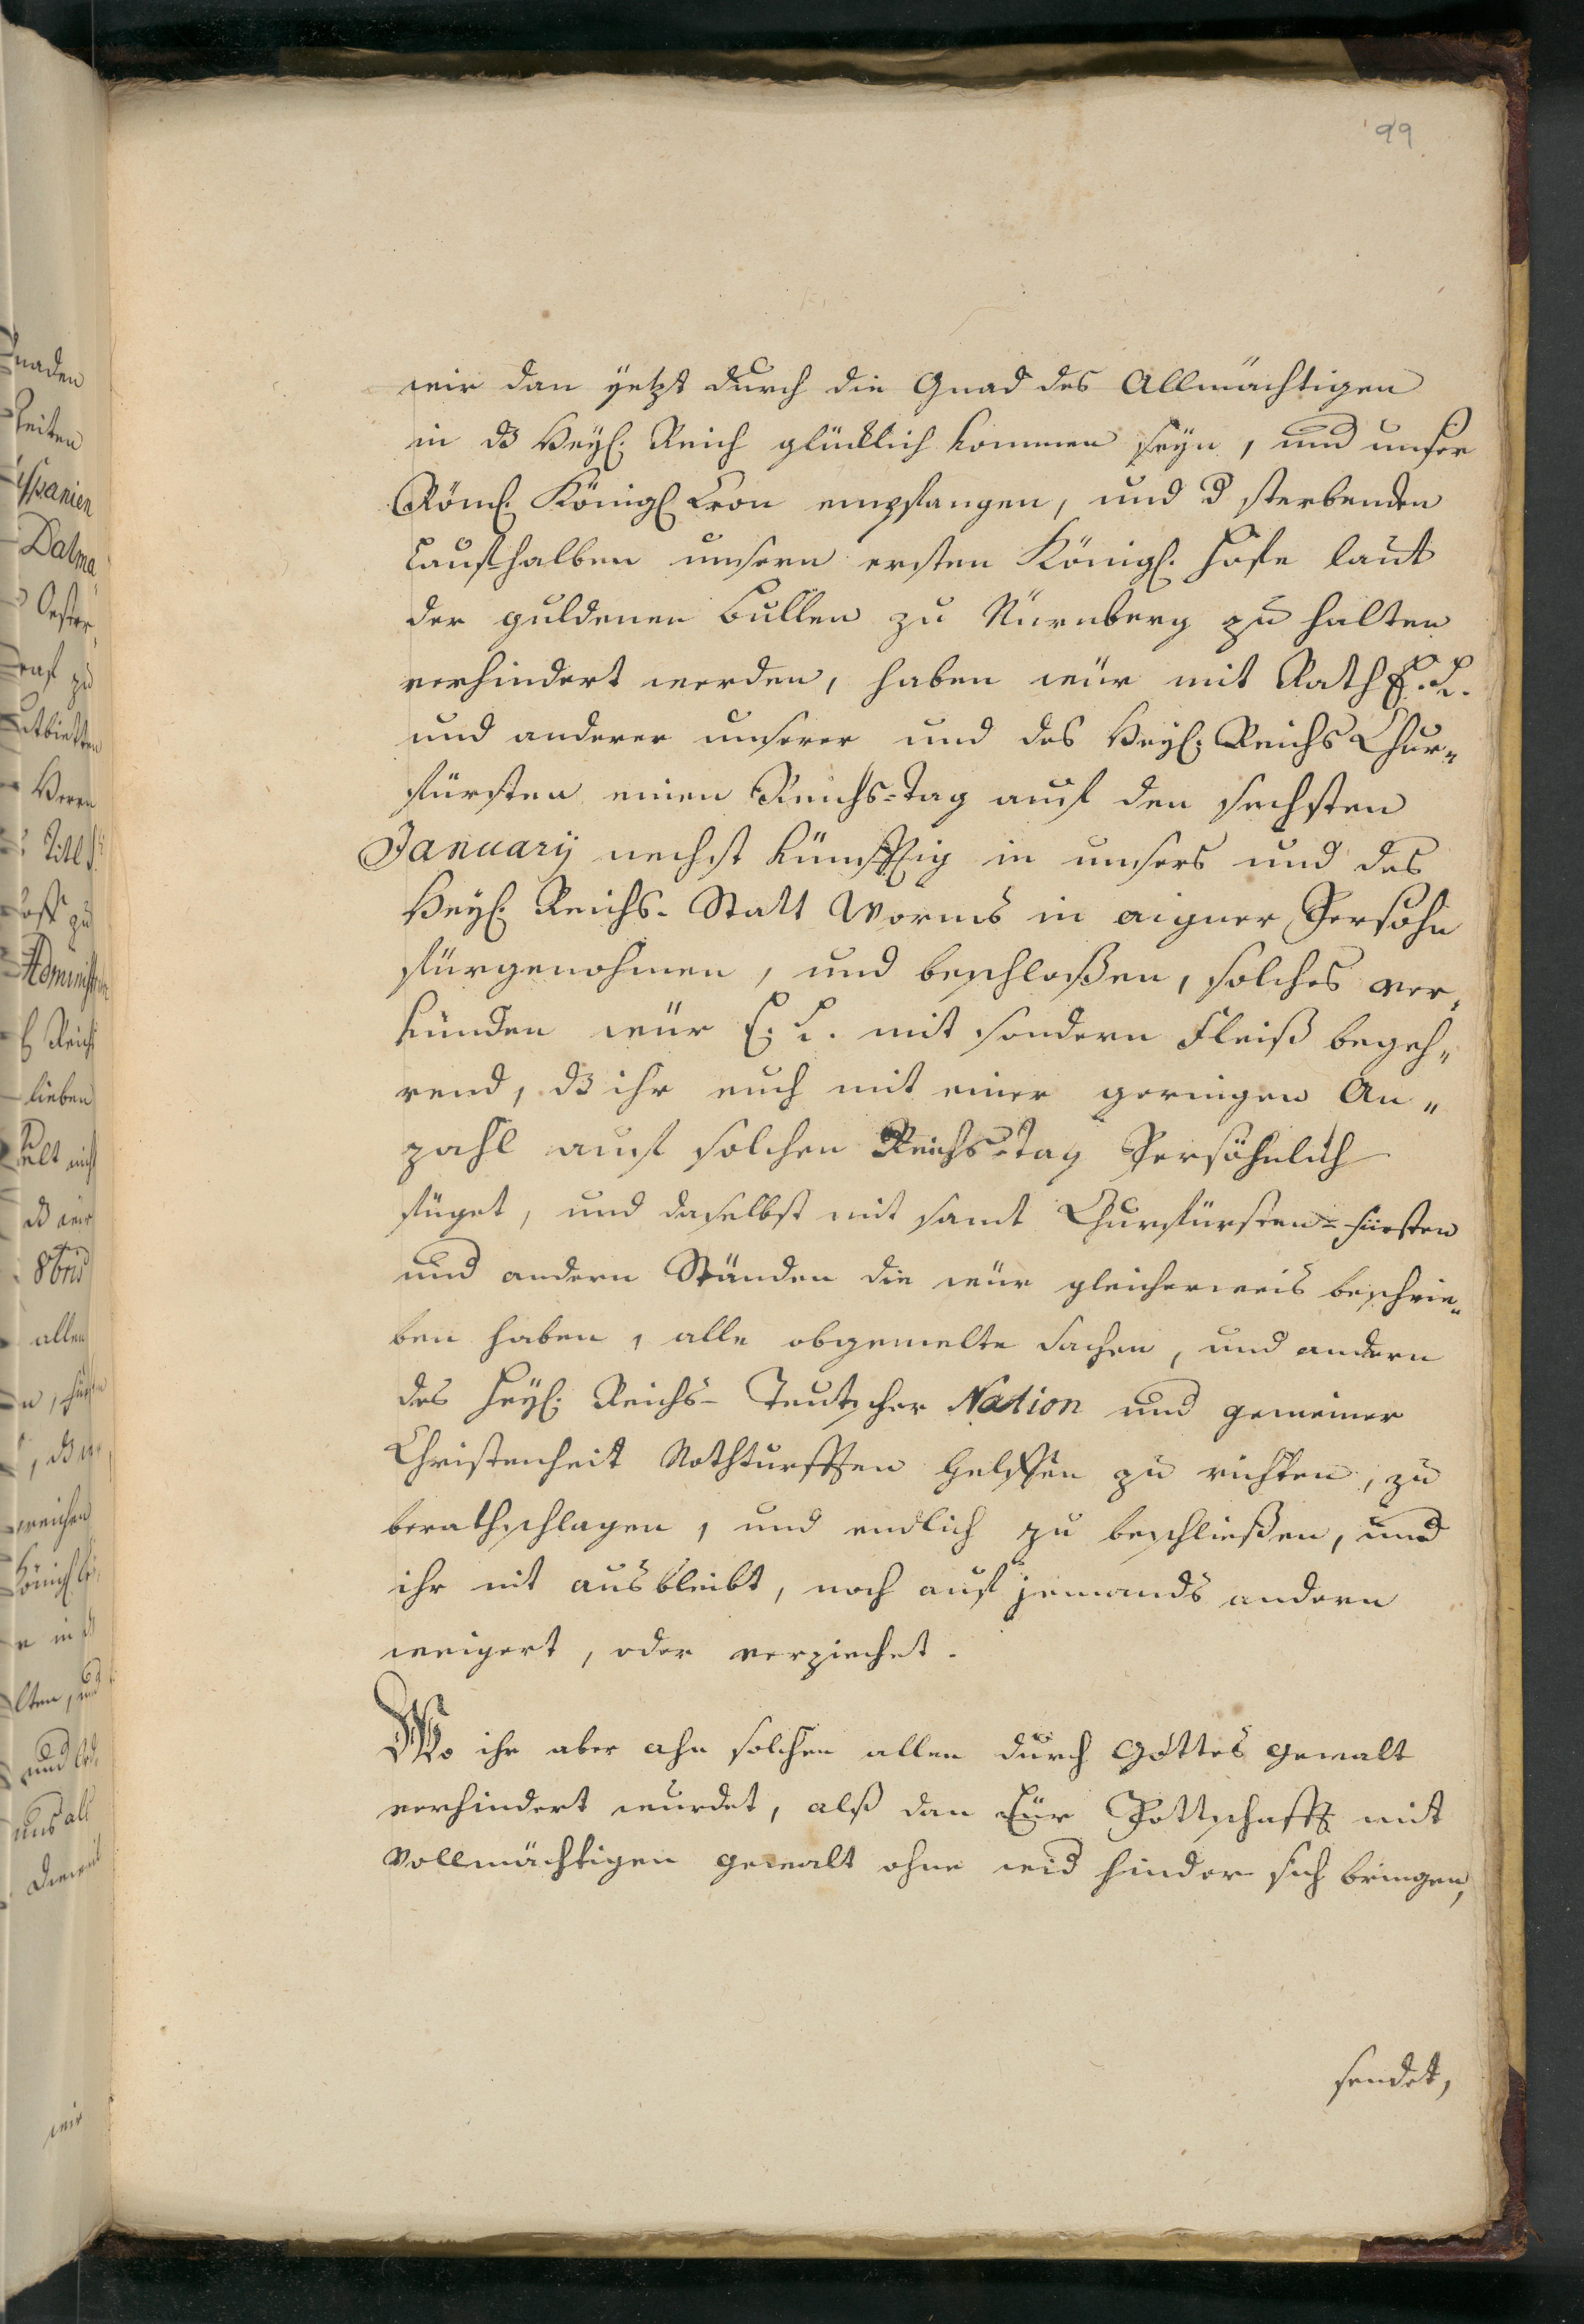 99
wir dan yetzt durch die Gnad des Allmächtigen
in dß Heyl: Reich glücklich kommen seyn, und unser
Röml: Königl Cron empfangen, und d sterbenden
Laufthalben unsern ersten Königl: Hofe laut
der guldenen Bullen zu Nürnberg zu halten
verhindert werden, haben wür mit Rath E. L.
und anderer unserer und des Heyl: Reichs Chur„
fürsten einen Reichs-Tag auf den sechsten
January nechst künfftig in unsers und des
Heyl: Reichs-Statt Worms in aigner Persohn
fürgenohmen, und beschloßen, solches ver„
künden wür E. L. mit sondern Fleiß begeh„
rend, dß ihr euch mit einer geringen An„
zahl auf solchen Reichs-Tag Persöhnlich
füget, und daselbst mit samt Churfürsten-Fürsten
und andern Ständen die wür gleicherweis beschrie„
ben haben, alle obgemelte Sachen, und andern
des Heyl: Reichs-Teutscher Nation und gemeiner
Christenheit Nothturfften helffen zu richten, zu
berathschlagen, und endlich zu beschließen, und
ihr nit ausbleibt, noch auf jemands andern
weigert, oder verziechet.
Wo ihr aber ahn solchen allen durch Gottes Gewalt
verhindert wurdet, alß dan Eür Pottschafft mit
Vollmächtigen Gewalt ohne wid hinder sich bringen,
sendet,